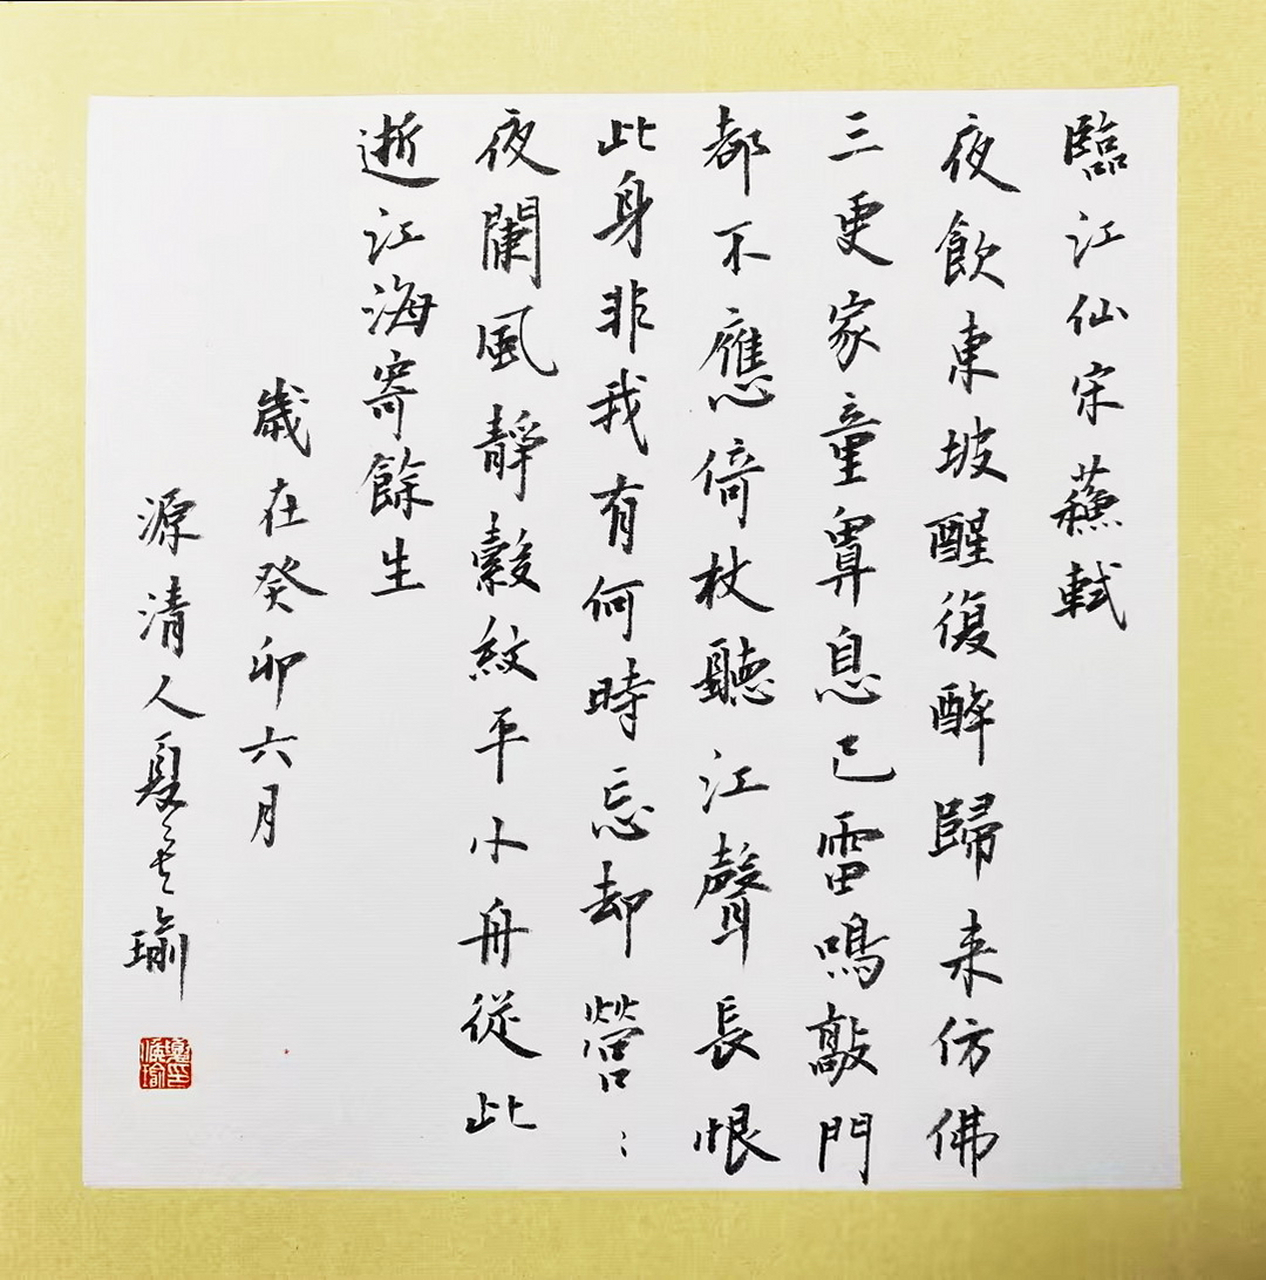 臨江仙宋蘇軾
夜飲東坡醒復醉歸来仿佛
三更家童鼻息已雷鳴敲門
都不應倚杖聽江聲長恨
此身非我有何時忘却營：
夜闌風靜縠紋平小舟從此
逝江海寄餘生
歲在癸卯六月
源清人夏瑜